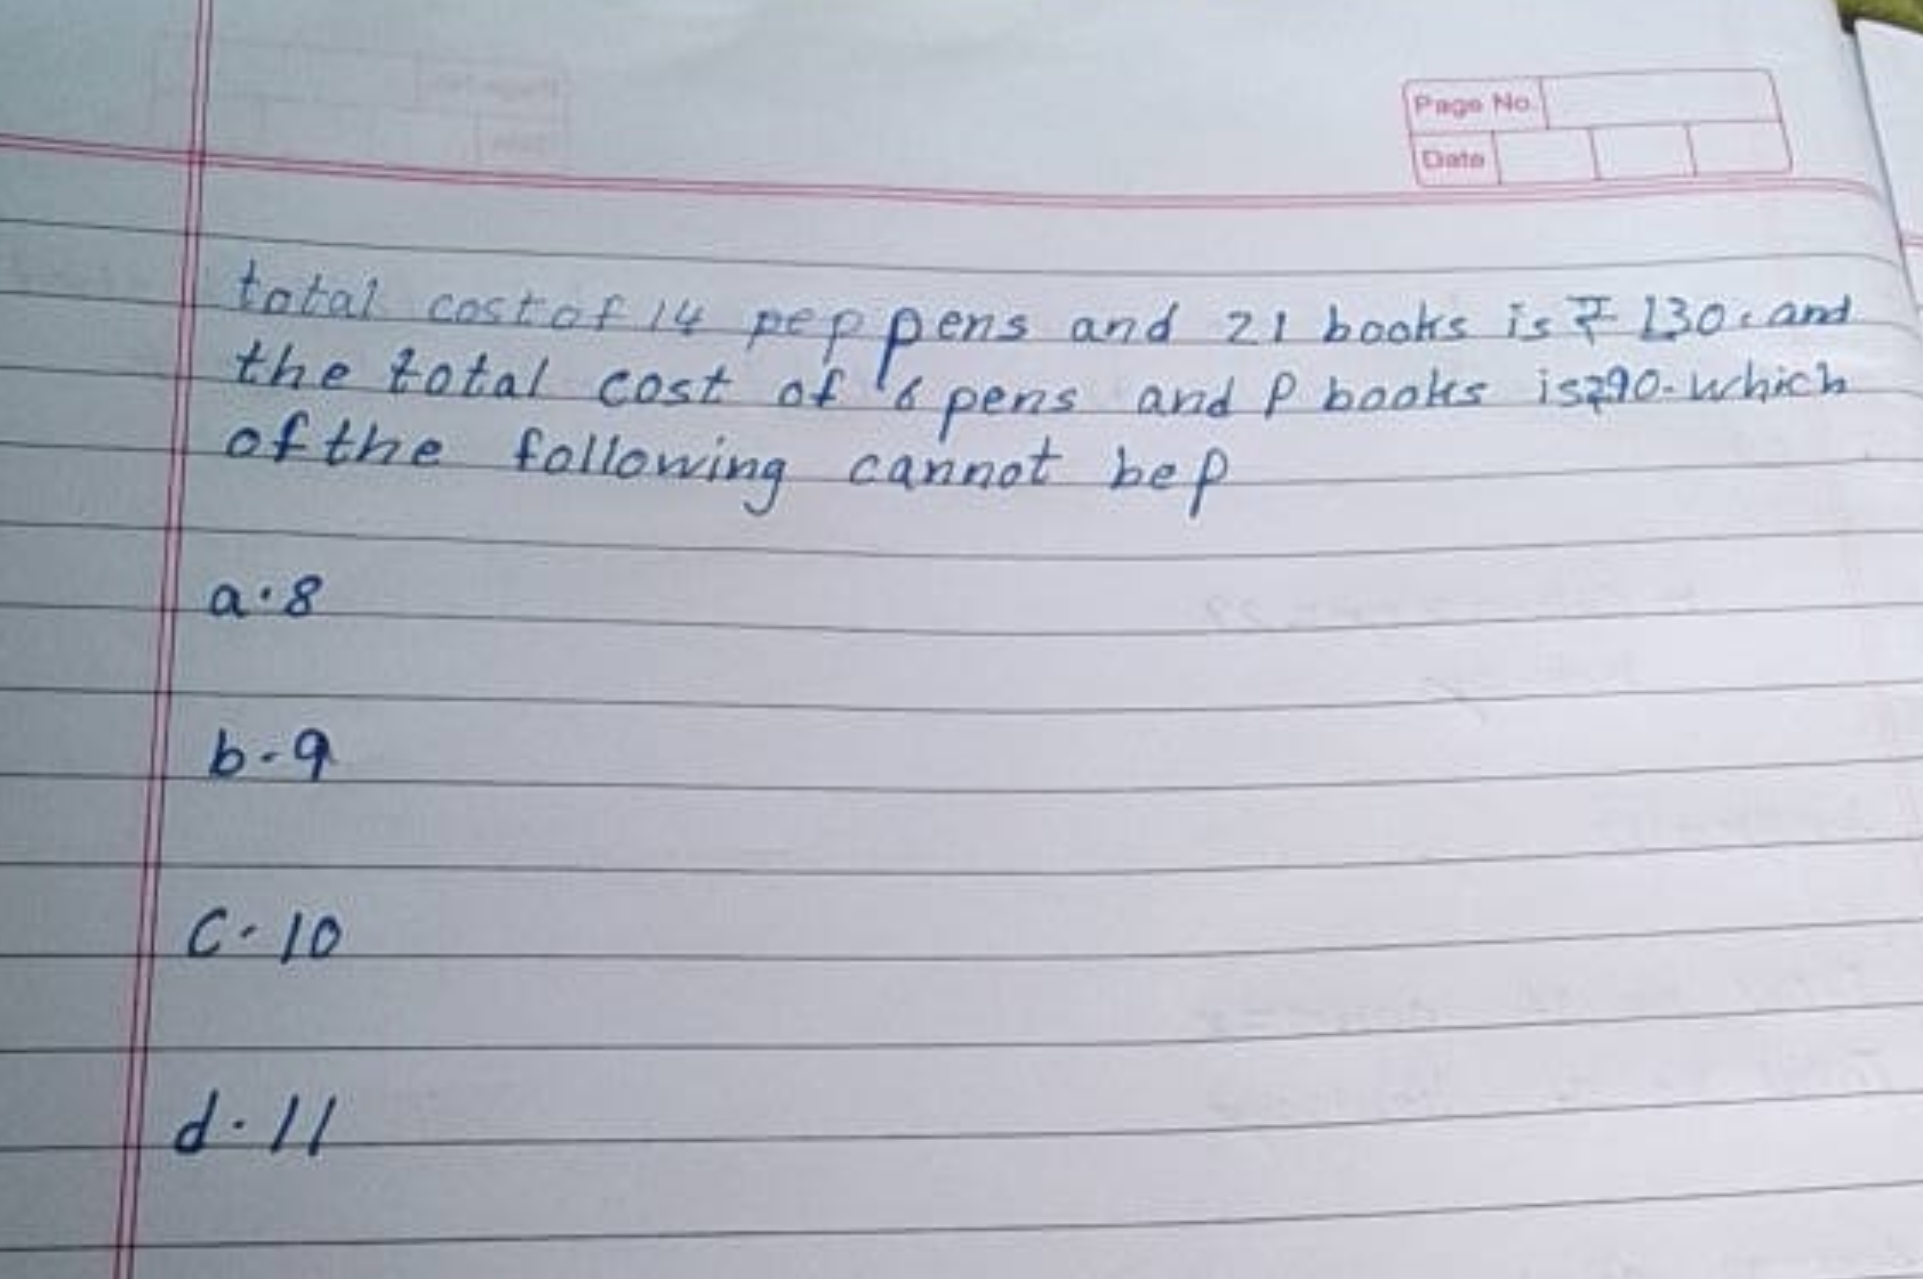 Page No.
Date
total cost of 14 pep pens and 21 books is ₹ 130. and
the total cost of 6 pens and P books is ₹90. which
of the following cannot be p
a. 8
b. 9
c. 10
d. 11